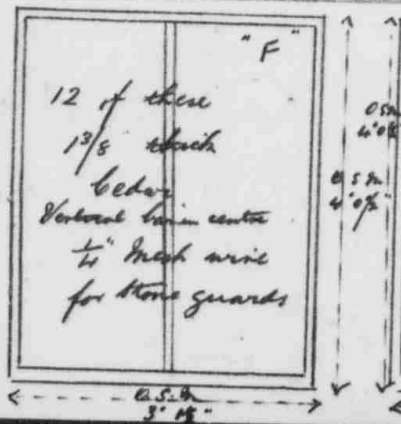 "F"
12 of these
1 3/8 thick
Cedar
Vertical bar in centre
1/4" Mesh wire
for stone guards
O.S.M
4' 0
O.S.M
4' 0
O.S.M
3'